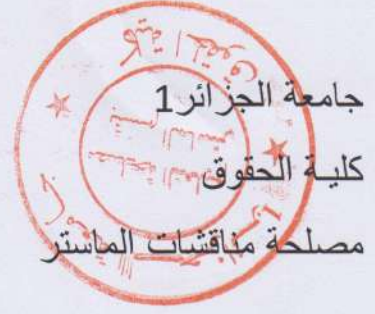 جامعة الجزائر1
كلية الحقوق
مصلحة مناقشات الماستر